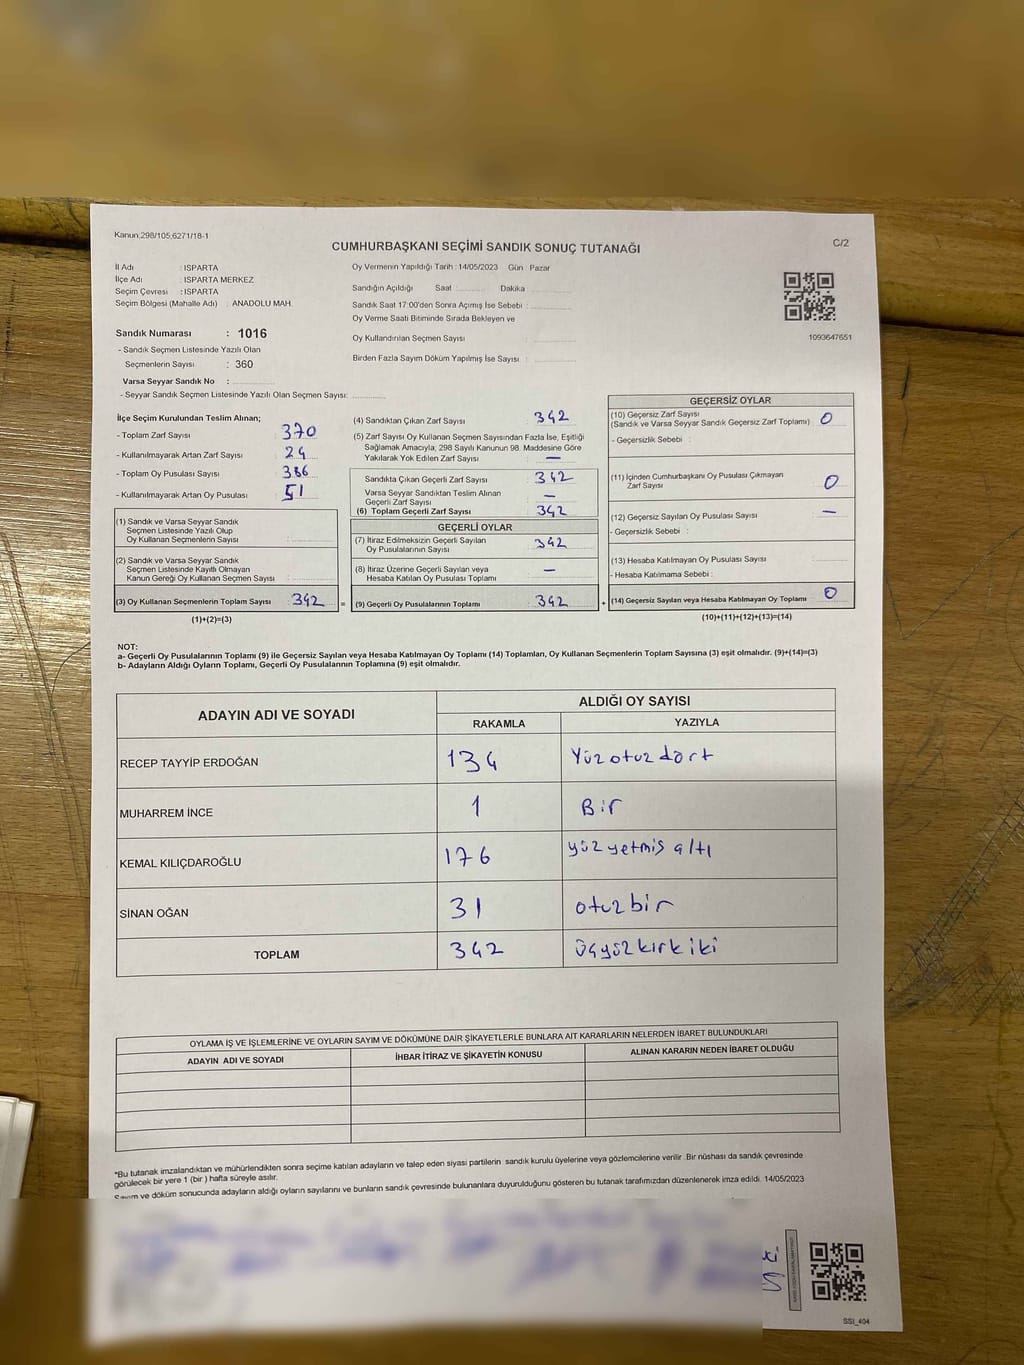 Kanun;298/105;6271/18-1
CUMHURBAŞKANI SEÇİMİ SANDIK SONUÇ TUTANAĞI
C/2
İl Adı : ISPARTA
İlçe Adı : ISPARTA MERKEZ
Seçim Çevresi : ISPARTA
Seçim Bölgesi (Mahalle Adı) : ANADOLU MAH.
Sandık Numarası : 1016
- Sandık Seçmen Listesinde Yazılı Olan
Seçmenlerin Sayısı : 360
Varsa Seyyar Sandık No :
- Seyyar Sandık Seçmen Listesinde Yazılı Olan Seçmen Sayısı:
Oy Vermenin Yapıldığı Tarih : 14/05/2023 Gün : Pazar
Sandığın Açıldığı Saat Dakika
Sandık Saat 17:00'den Sonra Açımış İse Sebebi :
Oy Verme Saati Bitiminde Sırada Bekleyen ve
Oy Kullandırılan Seçmen Sayısı :
Birden Fazla Sayım Döküm Yapılmış İse Sayısı :
1093647651
İlçe Seçim Kurulundan Teslim Alınan;
- Toplam Zarf Sayısı 370
- Kullanılmayarak Artan Zarf Sayısı 24
- Toplam Oy Pusulası Sayısı 386
- Kullanılmayarak Artan Oy Pusulası 51
(1) Sandık ve Varsa Seyyar Sandık
Seçmen Listesinde Yazılı Olup
Oy Kullanan Seçmenlerin Sayısı :
(2) Sandık ve Varsa Seyyar Sandık
Seçmen Listesinde Kayıtlı Olmayan
Kanun Gereği Oy Kullanan Seçmen Sayısı :
(3) Oy Kullanan Seçmenlerin Toplam Sayısı : 342 =
(1)+(2)=(3)
(4) Sandıktan Çıkan Zarf Sayısı 342
(5) Zarf Sayısı Oy Kullanan Seçmen Sayısından Fazla İse, Eşitliği
Sağlamak Amacıyla, 298 Sayılı Kanunun 98. Maddesine Göre
Yakılarak Yok Edilen Zarf Sayısı : —
Sandıkta Çıkan Geçerli Zarf Sayısı : 342
Varsa Seyyar Sandıktan Teslim Alınan
Geçerli Zarf Sayısı —
(6) Toplam Geçerli Zarf Sayısı : 342
GEÇERLİ OYLAR
(7) İtiraz Edilmeksizin Geçerli Sayılan
Oy Pusulalarının Sayısı : 342
(8) İtiraz Üzerine Geçerli Sayılan veya
Hesaba Katılan Oy Pusulası Toplamı : —
(9) Geçerli Oy Pusulalarının Toplamı : 342 +
GEÇERSİZ OYLAR
(10) Geçersiz Zarf Sayısı
(Sandık ve Varsa Seyyar Sandık Geçersiz Zarf Toplamı) : 0
- Geçersizlik Sebebi :
(11) İçinden Cumhurbaşkanı Oy Pusulası Çıkmayan
Zarf Sayısı 0
(12) Geçersiz Sayılan Oy Pusulası Sayısı : —
- Geçersizlik Sebebi :
(13) Hesaba Katılmayan Oy Pusulası Sayısı :
- Hesaba Katılmama Sebebi :
(14) Geçersiz Sayılan veya Hesaba Katılmayan Oy Toplamı : 0
(10)+(11)+(12)+(13)=(14)
NOT:
a- Geçerli Oy Pusulalarının Toplamı (9) ile Geçersiz Sayılan veya Hesaba Katılmayan Oy Toplamı (14) Toplamları, Oy Kullanan Seçmenlerin Toplam Sayısına (3) eşit olmalıdır. (9)+(14)=(3)
b- Adayların Aldığı Oyların Toplamı, Geçerli Oy Pusulalarının Toplamına (9) eşit olmalıdır.
ADAYIN ADI VE SOYADI
ALDIĞI OY SAYISI
RAKAMLA YAZIYLA
RECEP TAYYİP ERDOĞAN 134 Yüzotuzdört
MUHARREM İNCE 1 Bir
KEMAL KILIÇDAROĞLU 176 yüzyetmiş altı
SİNAN OĞAN 31 otuzbir
TOPLAM 342 Üçyüzkırkiki
OYLAMA İŞ VE İŞLEMLERİNE VE OYLARIN SAYIM VE DÖKÜMÜNE DAİR ŞİKAYETLERLE BUNLARA AİT KARARLARIN NELERDEN İBARET BULUNDUKLARI
ADAYIN ADI VE SOYADI İHBAR İTİRAZ VE ŞİKAYETİN KONUSU ALINAN KARARIN NEDEN İBARET OLDUĞU
*Bu tutanak imzalandıktan ve mühürlendikten sonra seçime katılan adayların ve talep eden siyasi partilerin sandık kurulu üyelerine veya gözlemcilerine verilir. Bir nüshası da sandık çevresinde
görülecek bir yere 1 (bir ) hafta süreyle asılır.
Sayım ve döküm sonucunda adayların aldığı oyların sayılarını ve bunların sandık çevresinde bulunanlara duyurulduğunu gösteren bu tutanak tarafımızdan düzenlenerek imza edildi. 14/05/2023
SSI_404